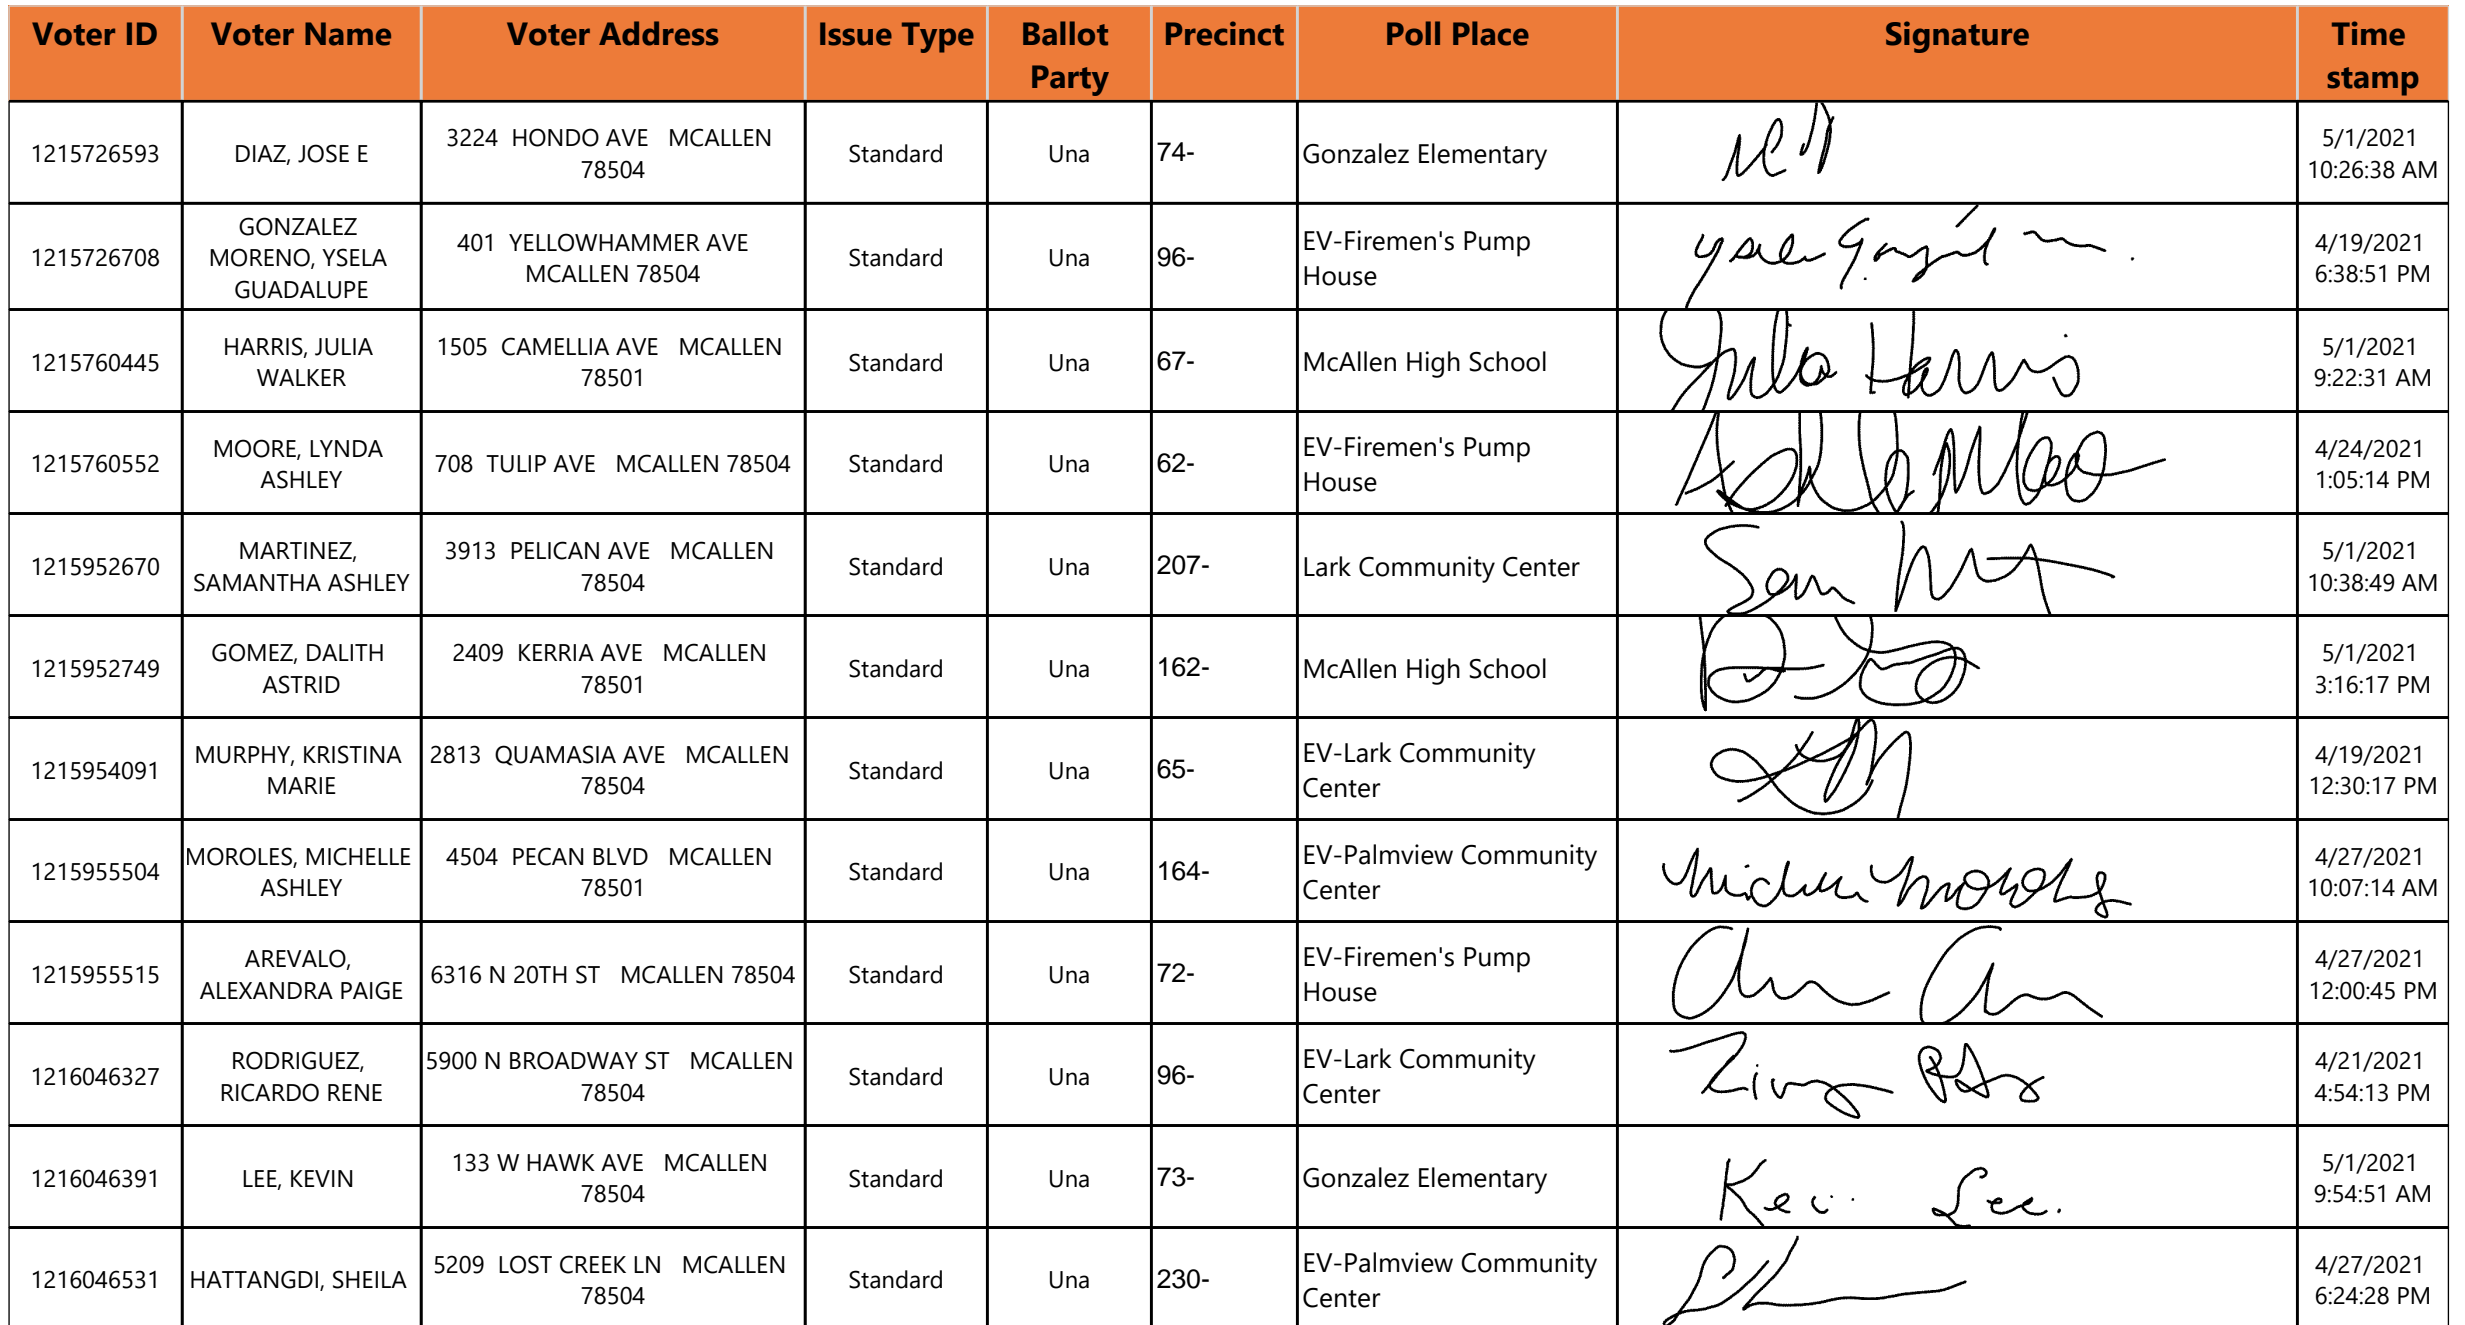 Voter ID Voter Name Voter Address Issue Type Ballot Party Precinct Poll Place Signature Time stamp
1215726593 DIAZ, JOSE E 3224 HONDO AVE MCALLEN 78504 Standard Una 74- Gonzalez Elementary 5/1/2021 10:26:38 AM
1215726708 GONZALEZ MORENO, YSELA GUADALUPE 401 YELLOWHAMMER AVE MCALLEN 78504 Standard Una 96- EV-Firemen's Pump House 4/19/2021 6:38:51 PM
1215760445 HARRIS, JULIA WALKER 1505 CAMELLIA AVE MCALLEN 78501 Standard Una 67- McAllen High School Julia Harris 5/1/2021 9:22:31 AM
1215760552 MOORE, LYNDA ASHLEY 708 TULIP AVE MCALLEN 78504 Standard Una 62- EV-Firemen's Pump House 4/24/2021 1:05:14 PM
1215952670 MARTINEZ, SAMANTHA ASHLEY 3913 PELICAN AVE MCALLEN 78504 Standard Una 207- Lark Community Center 5/1/2021 10:38:49 AM
1215952749 GOMEZ, DALITH ASTRID 2409 KERRIA AVE MCALLEN 78501 Standard Una 162- McAllen High School 5/1/2021 3:16:17 PM
1215954091 MURPHY, KRISTINA MARIE 2813 QUAMASIA AVE MCALLEN 78504 Standard Una 65- EV-Lark Community Center 4/19/2021 12:30:17 PM
1215955504 MOROLES, MICHELLE ASHLEY 4504 PECAN BLVD MCALLEN 78501 Standard Una 164- EV-Palmview Community Center Michelle Moroles 4/27/2021 10:07:14 AM
1215955515 AREVALO, ALEXANDRA PAIGE 6316 N 20TH ST MCALLEN 78504 Standard Una 72- EV-Firemen's Pump House 4/27/2021 12:00:45 PM
1216046327 RODRIGUEZ, RICARDO RENE 5900 N BROADWAY ST MCALLEN 78504 Standard Una 96- EV-Lark Community Center 4/21/2021 4:54:13 PM
1216046391 LEE, KEVIN 133 W HAWK AVE MCALLEN 78504 Standard Una 73- Gonzalez Elementary Kevi Lee. 5/1/2021 9:54:51 AM
1216046531 HATTANGDI, SHEILA 5209 LOST CREEK LN MCALLEN 78504 Standard Una 230- EV-Palmview Community Center 4/27/2021 6:24:28 PM